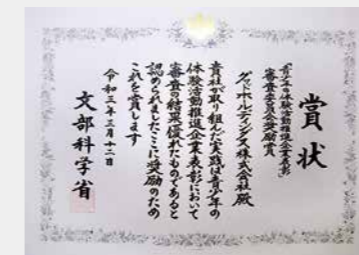 賞状
青少年の体験活動推進企業表彰
審査委員会奨励賞
グッドホールディングス株式会社 殿
貴社が取り組んだ実践は青少年の
体験活動推進企業表彰において
審査の結果優れたものであると
認められましたここに奨励のため
これを賞します
令和三年三月十二日
文部科学省